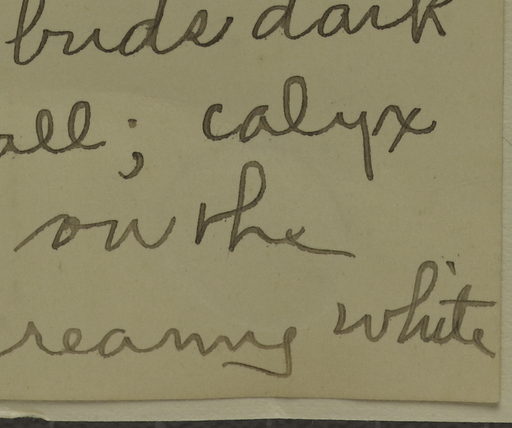 buds dark
all; calyx
on the
reamy white